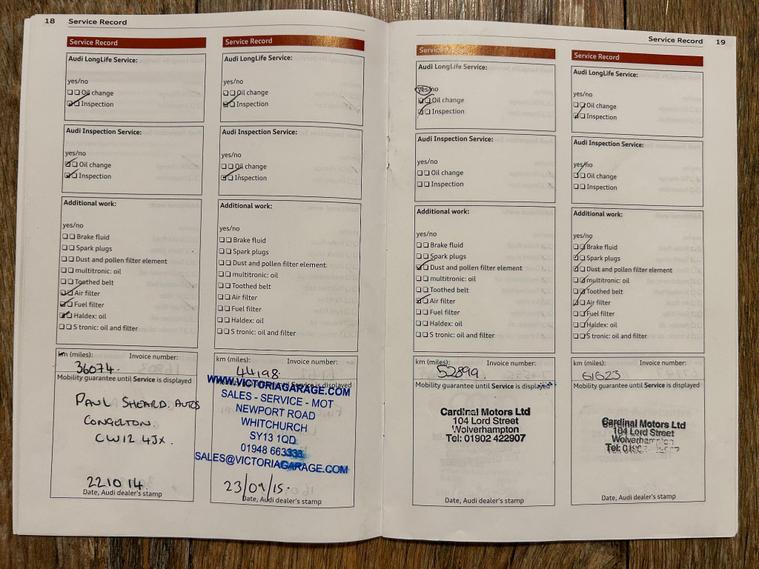 18 Service Record
Service Record
Audi LongLife Service:
yes/no
Oil change
Inspection
Audi Inspection Service:
yes/no
Oil change
Inspection
Additional work:
yes/no
Brake fluid
Spark plugs
Dust and pollen filter element
multitronic: oil
Toothed belt
Air filter
Fuel filter
Haldex: oil
S tronic: oil and filter
km (miles): Invoice number:
36074.
Mobility guarantee until Service is displayed
PAUL SHEARD. AUTOS
CONGLETON
CW12 4JX.
22 10 14.
Date, Audi dealer's stamp
Service Record
Audi LongLife Service:
yes/no
Oil change
Inspection
Audi Inspection Service:
yes/no
Oil change
Inspection
Additional work:
yes/no
Brake fluid
Spark plugs
Dust and pollen filter element
multitronic: oil
Toothed belt
Air filter
Fuel filter
Haldex: oil
S tronic: oil and filter
km (miles): Invoice number:
44198.
is displayed
WWW.VICTORIAGARAGE.COM
SALES - SERVICE - MOT
NEWPORT ROAD
WHITCHURCH
SY13 1QD
01948 663333
SALES@VICTORIAGARAGE.COM
23/09/15.
Date, Audi dealer's stamp
Service Record 19
Service Record
Audi LongLife Service:
yes/no
Oil change
Inspection
Audi Inspection Service:
yes/no
Oil change
Inspection
Additional work:
yes/no
Brake fluid
Spark plugs
Dust and pollen filter element
multitronic: oil
Toothed belt
Air filter
Fuel filter
Haldex: oil
S tronic: oil and filter
km (miles): Invoice number:
52899.
Mobility guarantee until Service is displayed
Cardinal Motors Ltd
104 Lord Street
Wolverhampton
Tel: 01902 422907
Date, Audi dealer's stamp
Service Record
Audi LongLife Service:
yes/no
Oil change
Inspection
Audi Inspection Service:
yes/no
Oil change
Inspection
Additional work:
yes/no
Brake fluid
Spark plugs
Dust and pollen filter element
multitronic: oil
Toothed belt
Air filter
Fuel filter
Haldex: oil
S tronic: oil and filter
km (miles): Invoice number:
61623
Mobility guarantee until Service is displayed
Cardinal Motors Ltd
104 Lord Street
Wolverhampton
Tel:
Date, Audi dealer's stamp